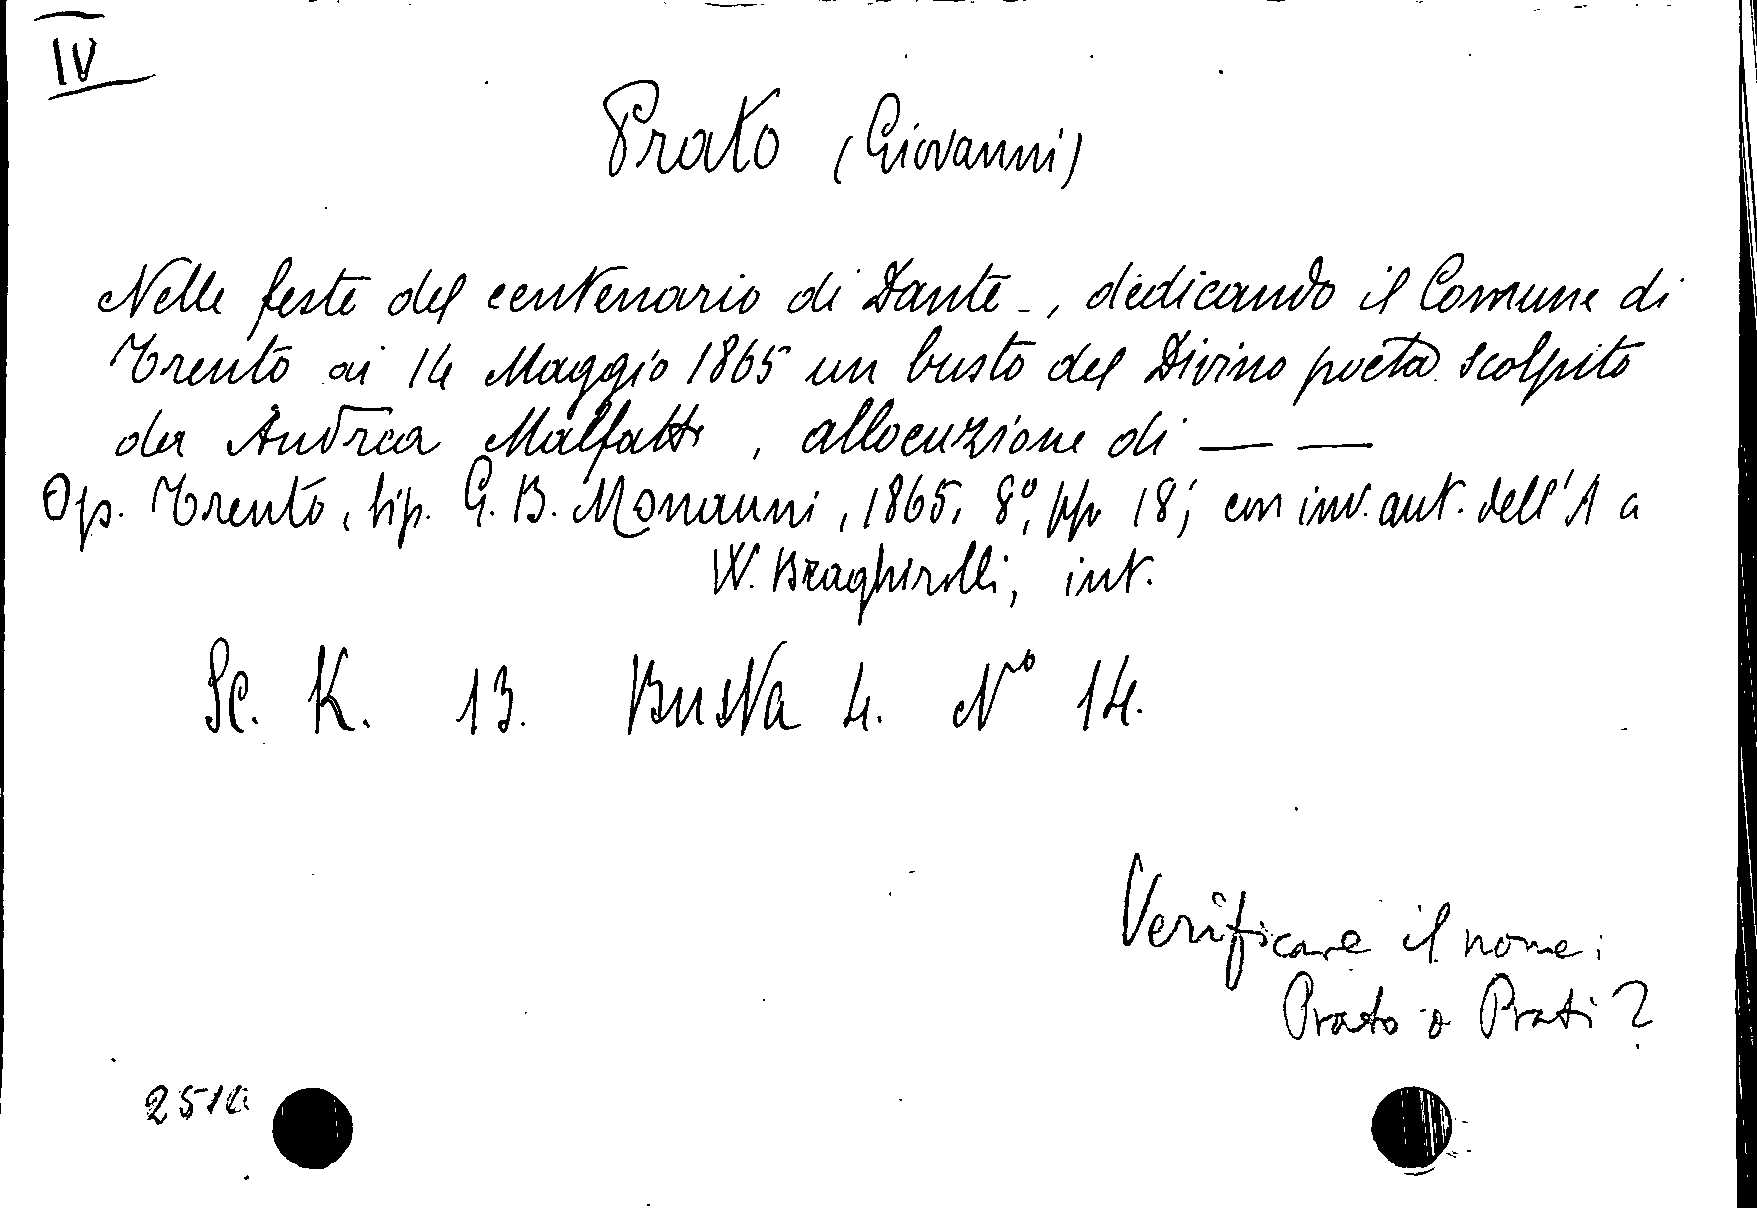 IV
Prato (Giovanni)
Nelle feste del centenario di Dante -, dedicando il Comune di
Trento ai 14 Maggio 1865 un busto del Divino poeta scolpito
da Andrea Malfatti, allocuzione di — —
Op. Trento, tip. G. B. Monauni, 1865, 8°, pp. 18; con inv. aut. dell'A a
W. Braghirolli, int.
Sc. K. 13. Busta 4. N° 14.
Verificare il nome:
Prato o Prati?